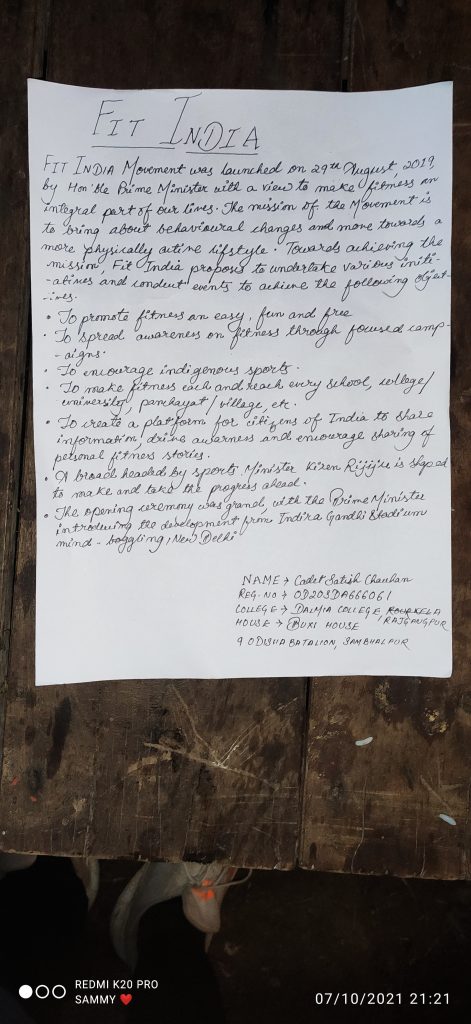 FIT INDIA
FIT INDIA Movement was launched on 29th August, 2019,
by Hon'ble Prime Minister with a view to make fitness an
integral part of our lives. The mission of the Movement is
to bring about behavioural changes and move towards a
more physically active lifstyle. Towards achieving the
mission, Fit India proposes to undertake various initi-
-atives and conduct events to achieve the following object-
-ives.
• To promote fitness an easy, fun and free
• To spread awareness on fitness through focused camp-
-aigns.
• To encourage indigenous sports.
• To make fitness each and reach every school, college/
university, panchayat/village, etc.
• To create a platform for citizens of India to share
information, drive awarness and encourage sharing of
personal fitness stories.
• A broad headed by sports Minister Kiren Rijiju is
to make and take the progress ahead.
• The opening ceremony was grand, with the Prime Minister
introducing the development from Indira Gandhi Stadium
mind-boggling, New Delhi
NAME → Cadet Satish Chauhan
REG. NO → OD20SDA666061
COLLEGE → DALMIA COLLEGE, ROURKELA
RAJGANGPUR
HOUSE → BUXI HOUSE
9 ODISHA BATALION, SAMBHALPUR
REDMI K20 PRO
SAMMY ❤
07/10/2021 21:21